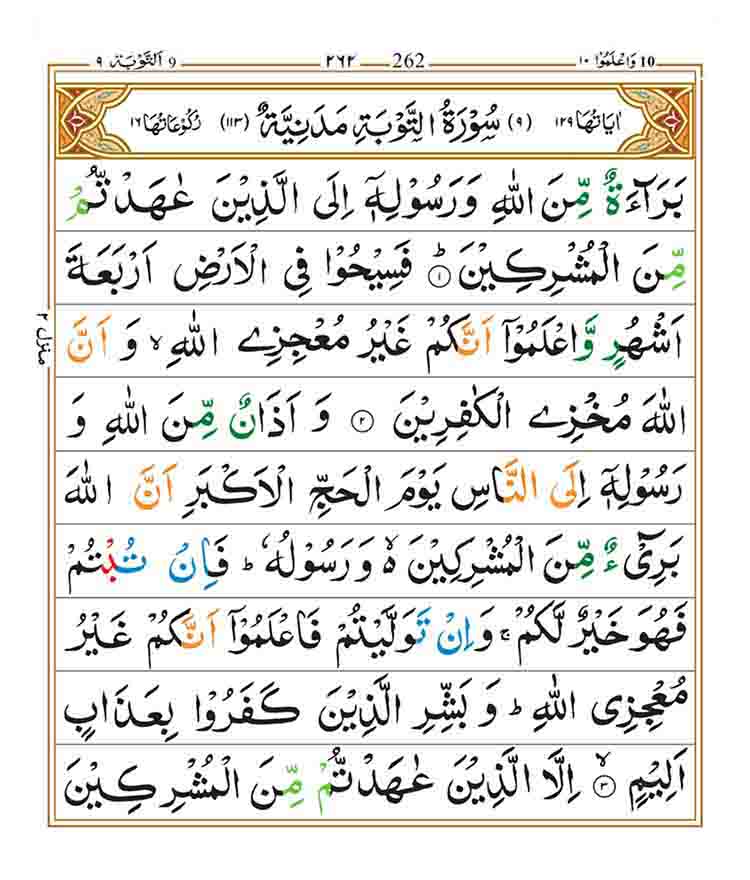 وَاعْلَمُوْٓا ١٠ 10 262 ٢٦٢ اَلتَّوْبَة ٩ 9
اٰيَاتُهَا ١٢٩ (٩) سُوْرَةُ التَّوْبَةِ مَدَنِيَّةٌ (١١٣) رُكُوْعَاتُهَا ١٦
بَرَآءَةٌ مِّنَ اللّٰهِ وَرَسُوْلِهٖۤ اِلَى الَّذِيْنَ عٰهَدْتُّمْ
مِّنَ الْمُشْرِكِيْنَ ؕ ١ فَسِيْحُوْا فِي الْاَرْضِ اَرْبَعَةَ
اَشْهُرٍ وَّاعْلَمُوْۤا اَنَّكُمْ غَيْرُ مُعْجِزِي اللّٰهِ ۙ وَ اَنَّ
اللّٰهَ مُخْزِي الْكٰفِرِيْنَ ٢ وَ اَذَانٌ مِّنَ اللّٰهِ وَ
رَسُوْلِهٖۤ اِلَى النَّاسِ يَوْمَ الْحَجِّ الْاَكْبَرِ اَنَّ اللّٰهَ
بَرِيْٓءٌ مِّنَ الْمُشْرِكِيْنَ ۙ۬ وَرَسُوْلُهٗ ؕ فَاِنْ تُبْتُمْ
فَهُوَ خَيْرٌ لَّكُمْ ۚ وَاِنْ تَوَلَّيْتُمْ فَاعْلَمُوْۤا اَنَّكُمْ غَيْرُ
مُعْجِزِي اللّٰهِ ؕ وَ بَشِّرِ الَّذِيْنَ كَفَرُوْا بِعَذَابٍ
اَلِيْمٍ ۙ ٣ اِلَّا الَّذِيْنَ عٰهَدْتُّمْ مِّنَ الْمُشْرِكِيْنَ
منزل ٢